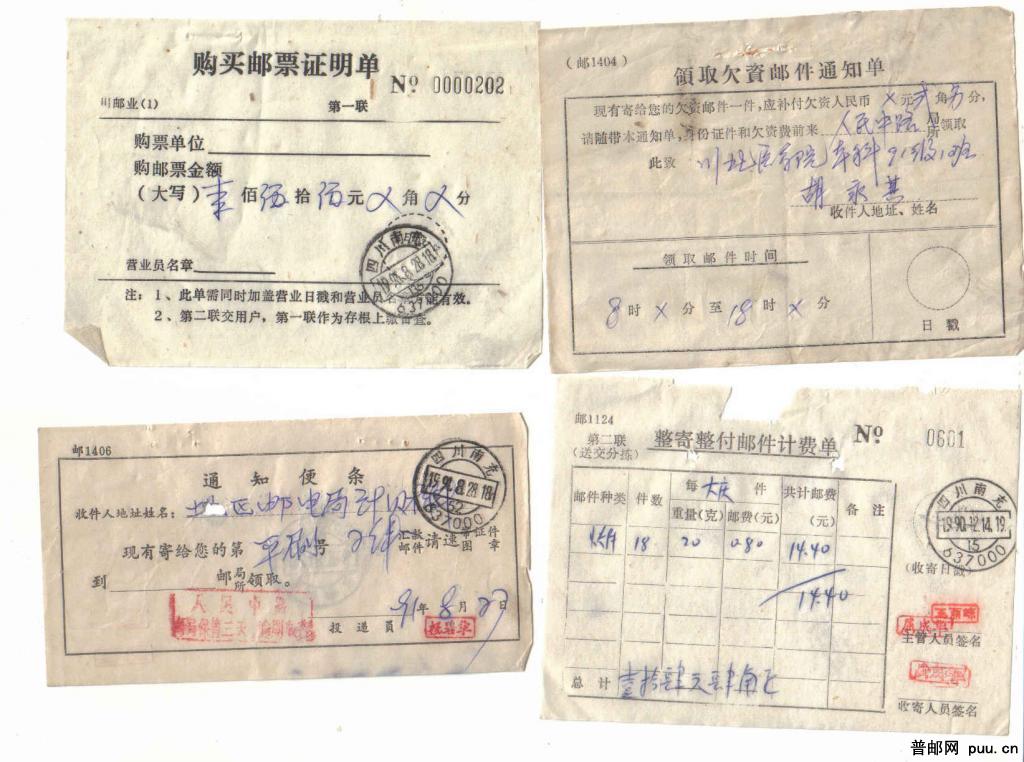 购买邮票证明单
№ 0000202
川邮业(1) 第一联
购票单位
购邮票金额
(大写) 壹佰伍拾伍元 X 角 X 分
营业员名章
四川南充
637000
注:1、此单需同时加盖营业日戳和营业员
有效。
2、第二联交用户,第一联作为存根上缴
(邮1404)
領取欠資邮件通知单
现有寄给您的欠资邮件一件,应补付欠资人民币 X 元 角 分,
请随带本通知单,身份证件和欠资费前来 人民中路 局所 领取
此致 川北医学院 本科91级1班
胡永
收件人地址、姓名
領取邮件时间
8 时 X 分至 18 时 X 分
日戳
邮1406
通知便条
四川南充
1991.8.28.18
637000
收件人地址姓名: 地区邮电局
现有寄给您的第 号 汇款邮件 请速带证件图章
到 邮局所 领取。
91 年 8 月 27 日
投递员
邮1124
第二联
(送交分拣)
整寄整付邮件计费单
№ 0601
邮件种类 件数 每 件 共计邮费(元) 备注
重量(克) 邮费(元)
18 20 0.80 14.40
14.40
总计 壹拾肆元肆角正
四川南充
1990.12.14.19
15
637000
(收寄日戳)
主管人员签名
收寄人员签名
普邮网 puu.cn